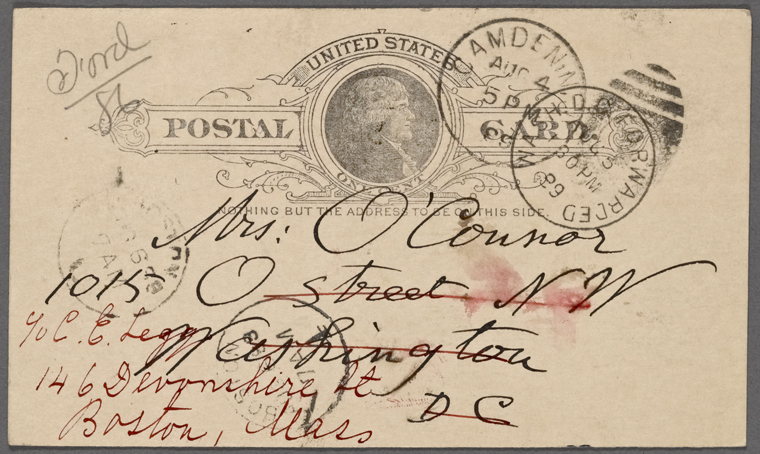 Ford
86
UNITED STATES
POSTAL CARD
ONE CENT
NOTHING BUT THE ADDRESS TO BE ON THIS SIDE.
CAMDEN N
AUG 4
5 PM
89
WASH. D.C. FORWARDED
30 PM
89
Mrs: O'Connor
1015 O street N W
Washington
D C
7 AM
c/o C. E. Legg
146 Devonshire St
Boston, Mass